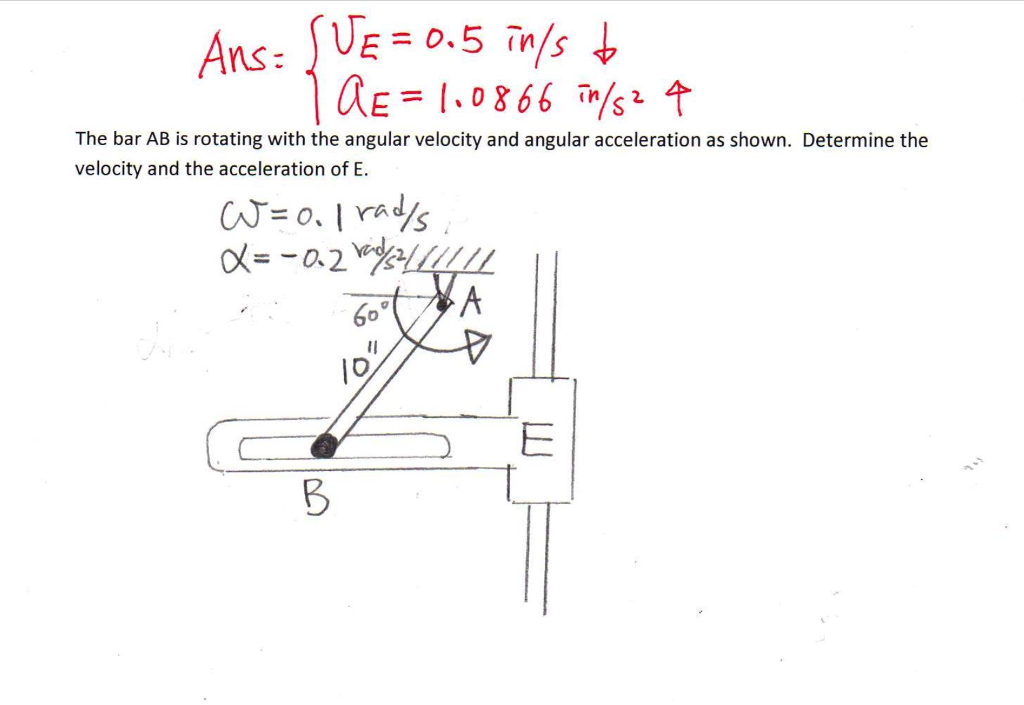 Ans: { VE = 0.5 in/s ↓
aE = 1.0866 in/s² ↑
The bar AB is rotating with the angular velocity and angular acceleration as shown. Determine the
velocity and the acceleration of E.
ω = 0.1 rad/s
α = -0.2 rad/s²
60° A
10"
E
B